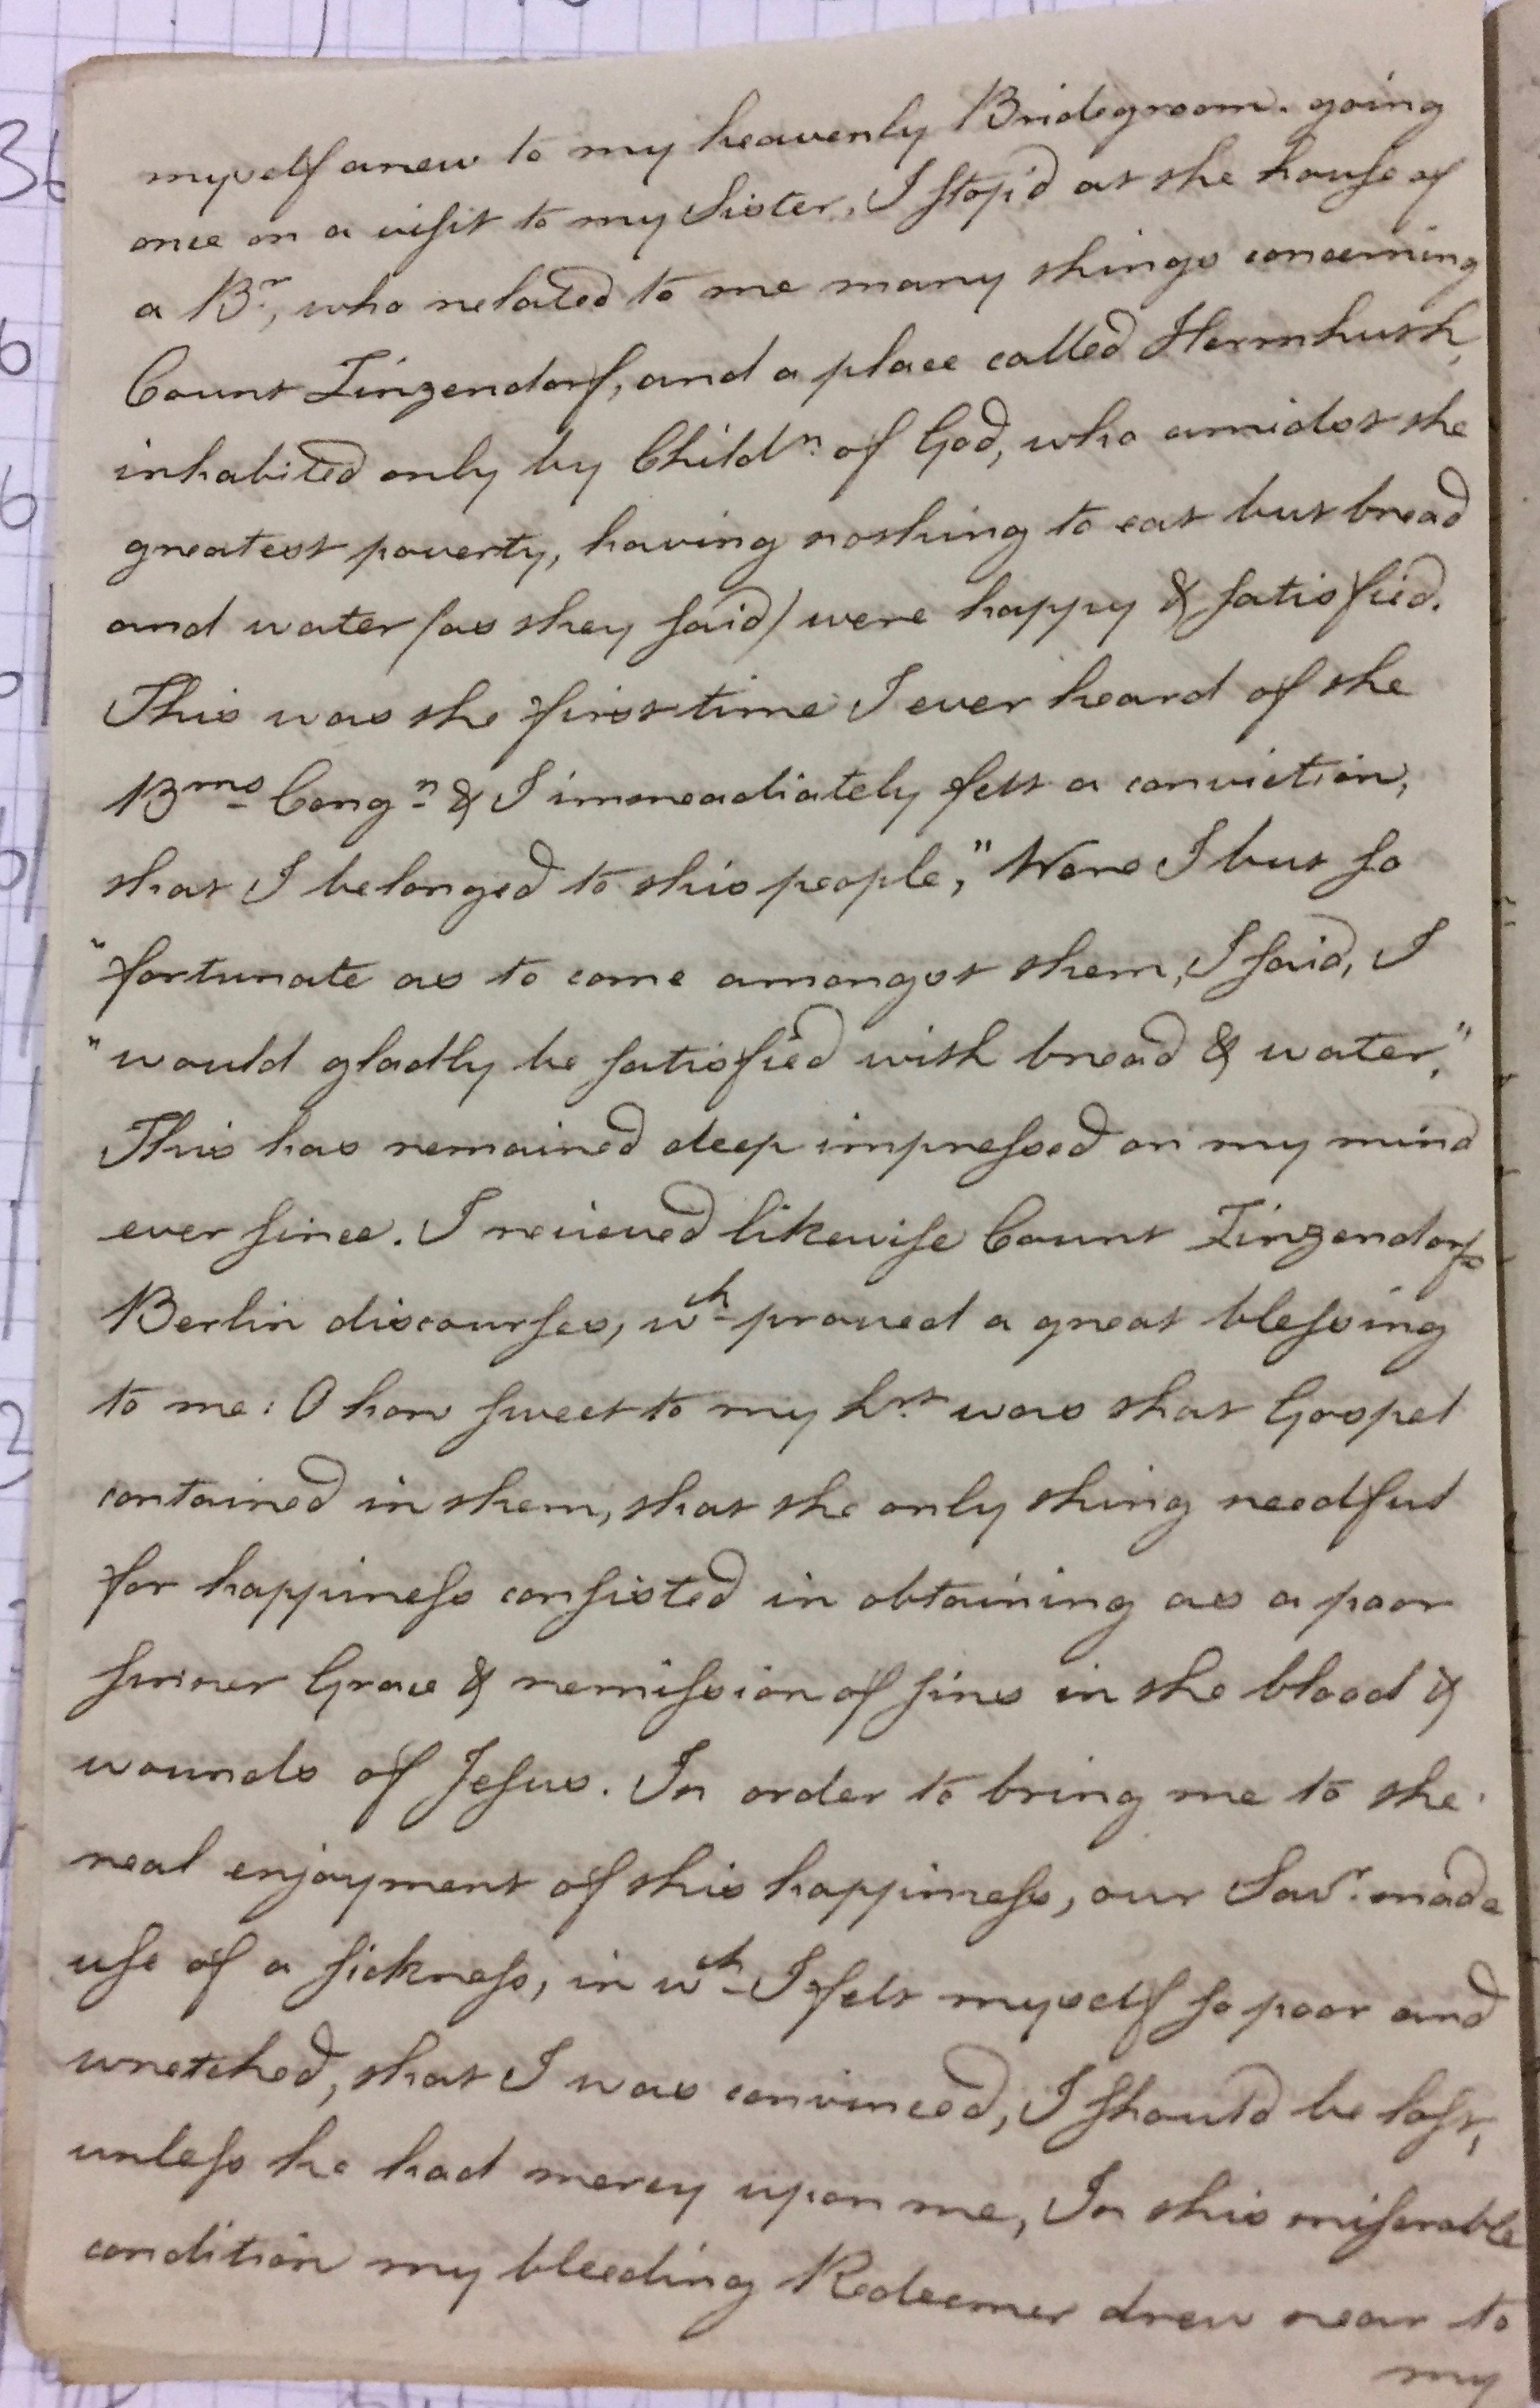 myself anew to my heavenly Bridegroom. going
once on a visit to my Sister, I stop'd at the house of
a Br., who related to me many things concerning
Count Zinzendorf, and a place called Herrnhuth,
inhabited only by Childn. of God, who amidst the
greatest poverty, having nothing to eat but bread
and water (as they said) were happy & satisfied.
This was the first time I ever heard of the
Brns Congn & I immeadiately felt a conviction,
that I belonged to this people, "Were I but so
"fortunate as to come amongst them, I said, I
"would gladly be satisfied with bread & water."
This has remained deep impressed on my mind
ever since. I recieved likewise Count Zinzendorfs
Berlin discourses, wch proved a great blessing
to me: O how sweet to my hrt. was that Gospel
contained in them, that the only thing needful
for happiness consisted in obtaining as a poor
sinner Grace & remission of sins in the blood &
wounds of Jesus. In order to bring me to the
real enjoyment of this happiness, our Savr. made
use of a sickness, in wch I felt myself so poor and
wretched, that I was convinced, I should be lost,
unless he had mercy upon me, In this miserable
condition my bleeding Redeemer drew near to
my